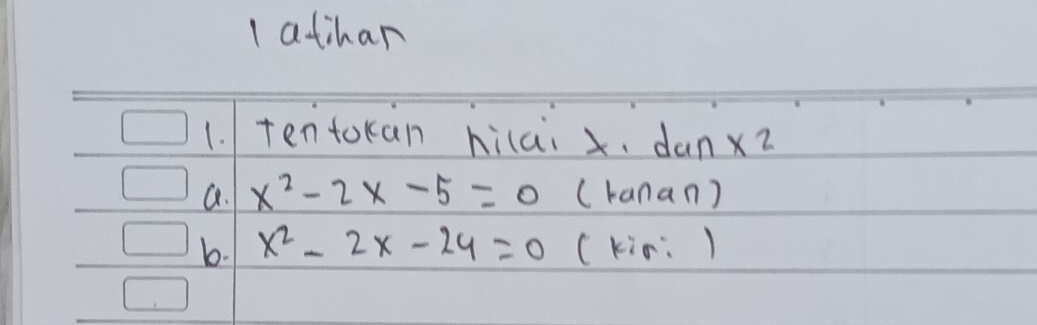 latihan
1. Tentukan nilai x1 dan x2
a. x² - 2x - 5 = 0 (kanan)
b. x² - 2x - 24 = 0 (kiri)